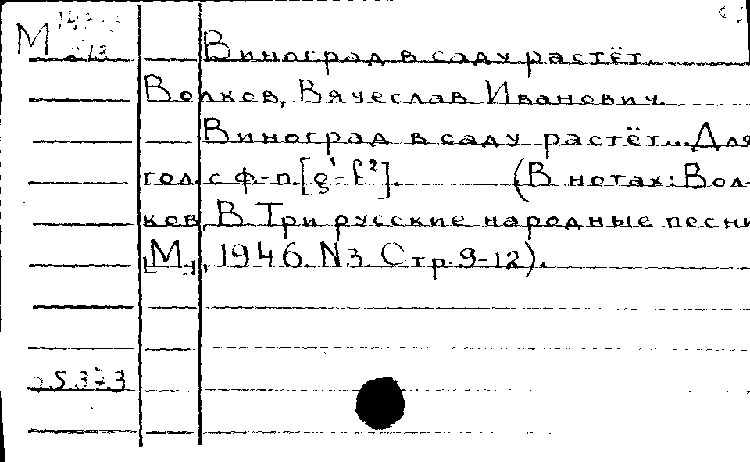 М Виноград в саду растёт.
Волков, Вячеслав Иванович.
Виноград в саду растёт... Для
гол. с ф-п. [g¹-f²]. (В нотах: Вол-
ков, В. Три русские народные песни
[М.], 1946. N3. Стр. 9-12).
5373